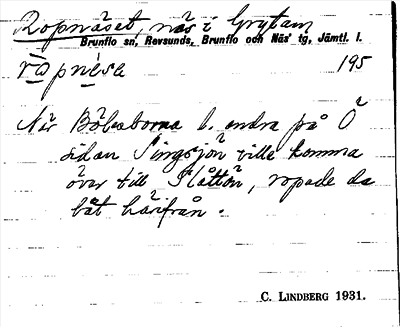 Ropnäset, näs i Grytan,
Brunflo sn, Revsunds, Brunflo och Näs' tg, Jämtl. l.
195
När Bölesborna l. andra på Ö
sidan Singsjön ville komma
över till Slåttön, ropade de
båt härifrån.
C. LINDBERG 1931.